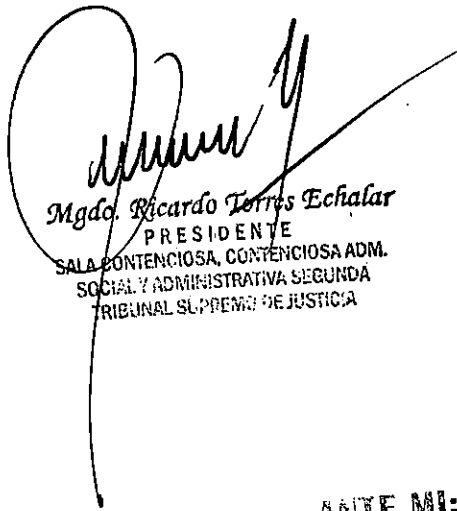 Mgdo. Ricardo Torres Echalar
PRESIDENTE
SALA CONTENCIOSA, CONTENCIOSA ADM.
SOCIAL Y ADMINISTRATIVA SEGUNDA
TRIBUNAL SUPREMO DE JUSTICIA
ANTE MI: